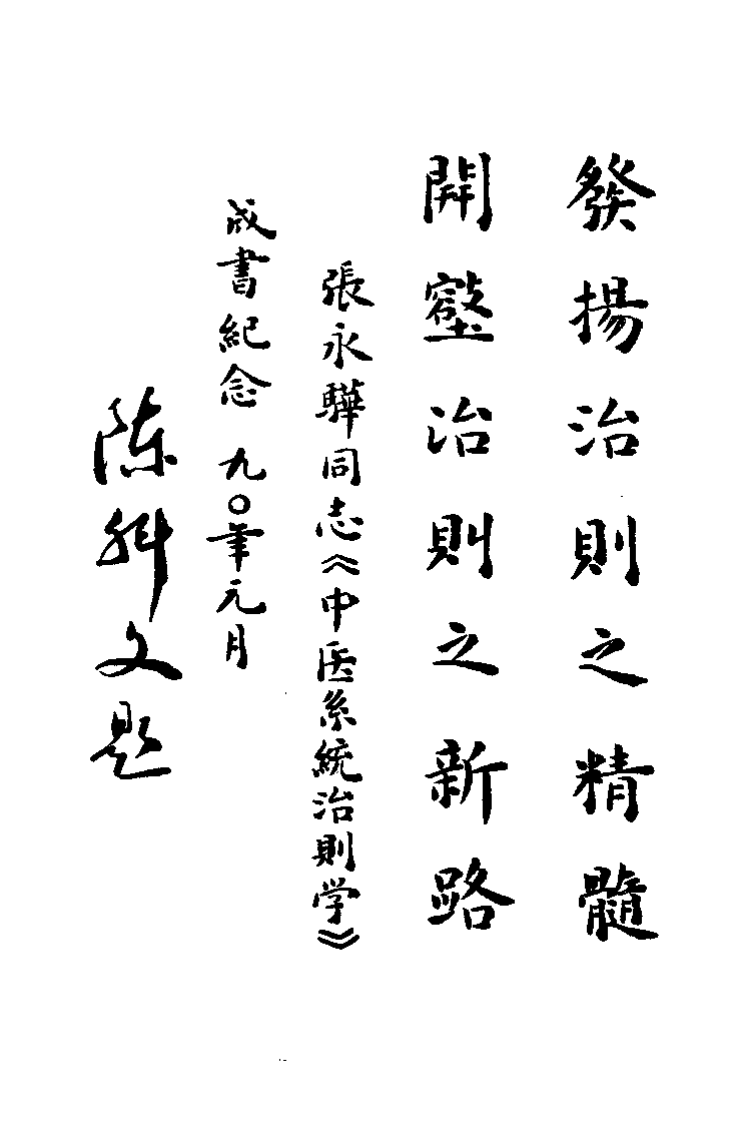 發揚治則之精髓
開壑治則之新路
張永驊同志《中医系統治則学》
成書紀念 九〇年元月
陈科文题